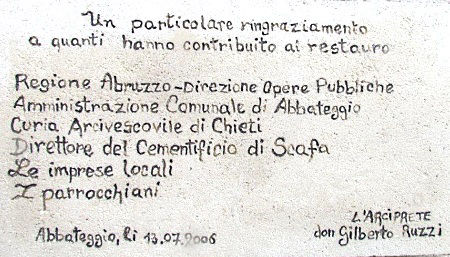 Un particolare ringraziamento
a quanti hanno contribuito ai restauro
Regione Abruzzo-Direzione Opere Pubbliche
Amministrazione Comunale di Abbateggio
Curia Arcivescovile di Chieti
Direttore del Cementificio di Scafa
Le imprese locali
I parrocchiani
L'ARCIPRETE
Abbateggio, lì 13.07.2006 don Gilberto Ruzzi